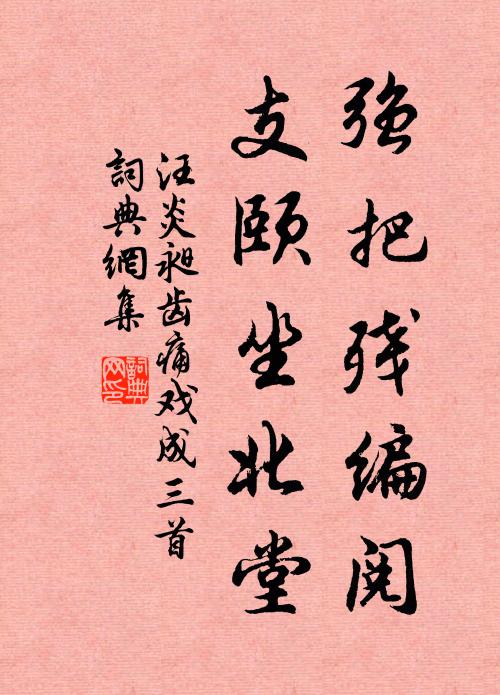 強把残編阅
支颐坐北堂
汪炎昶齿痛戏成三首
詞典網集
詞典网印